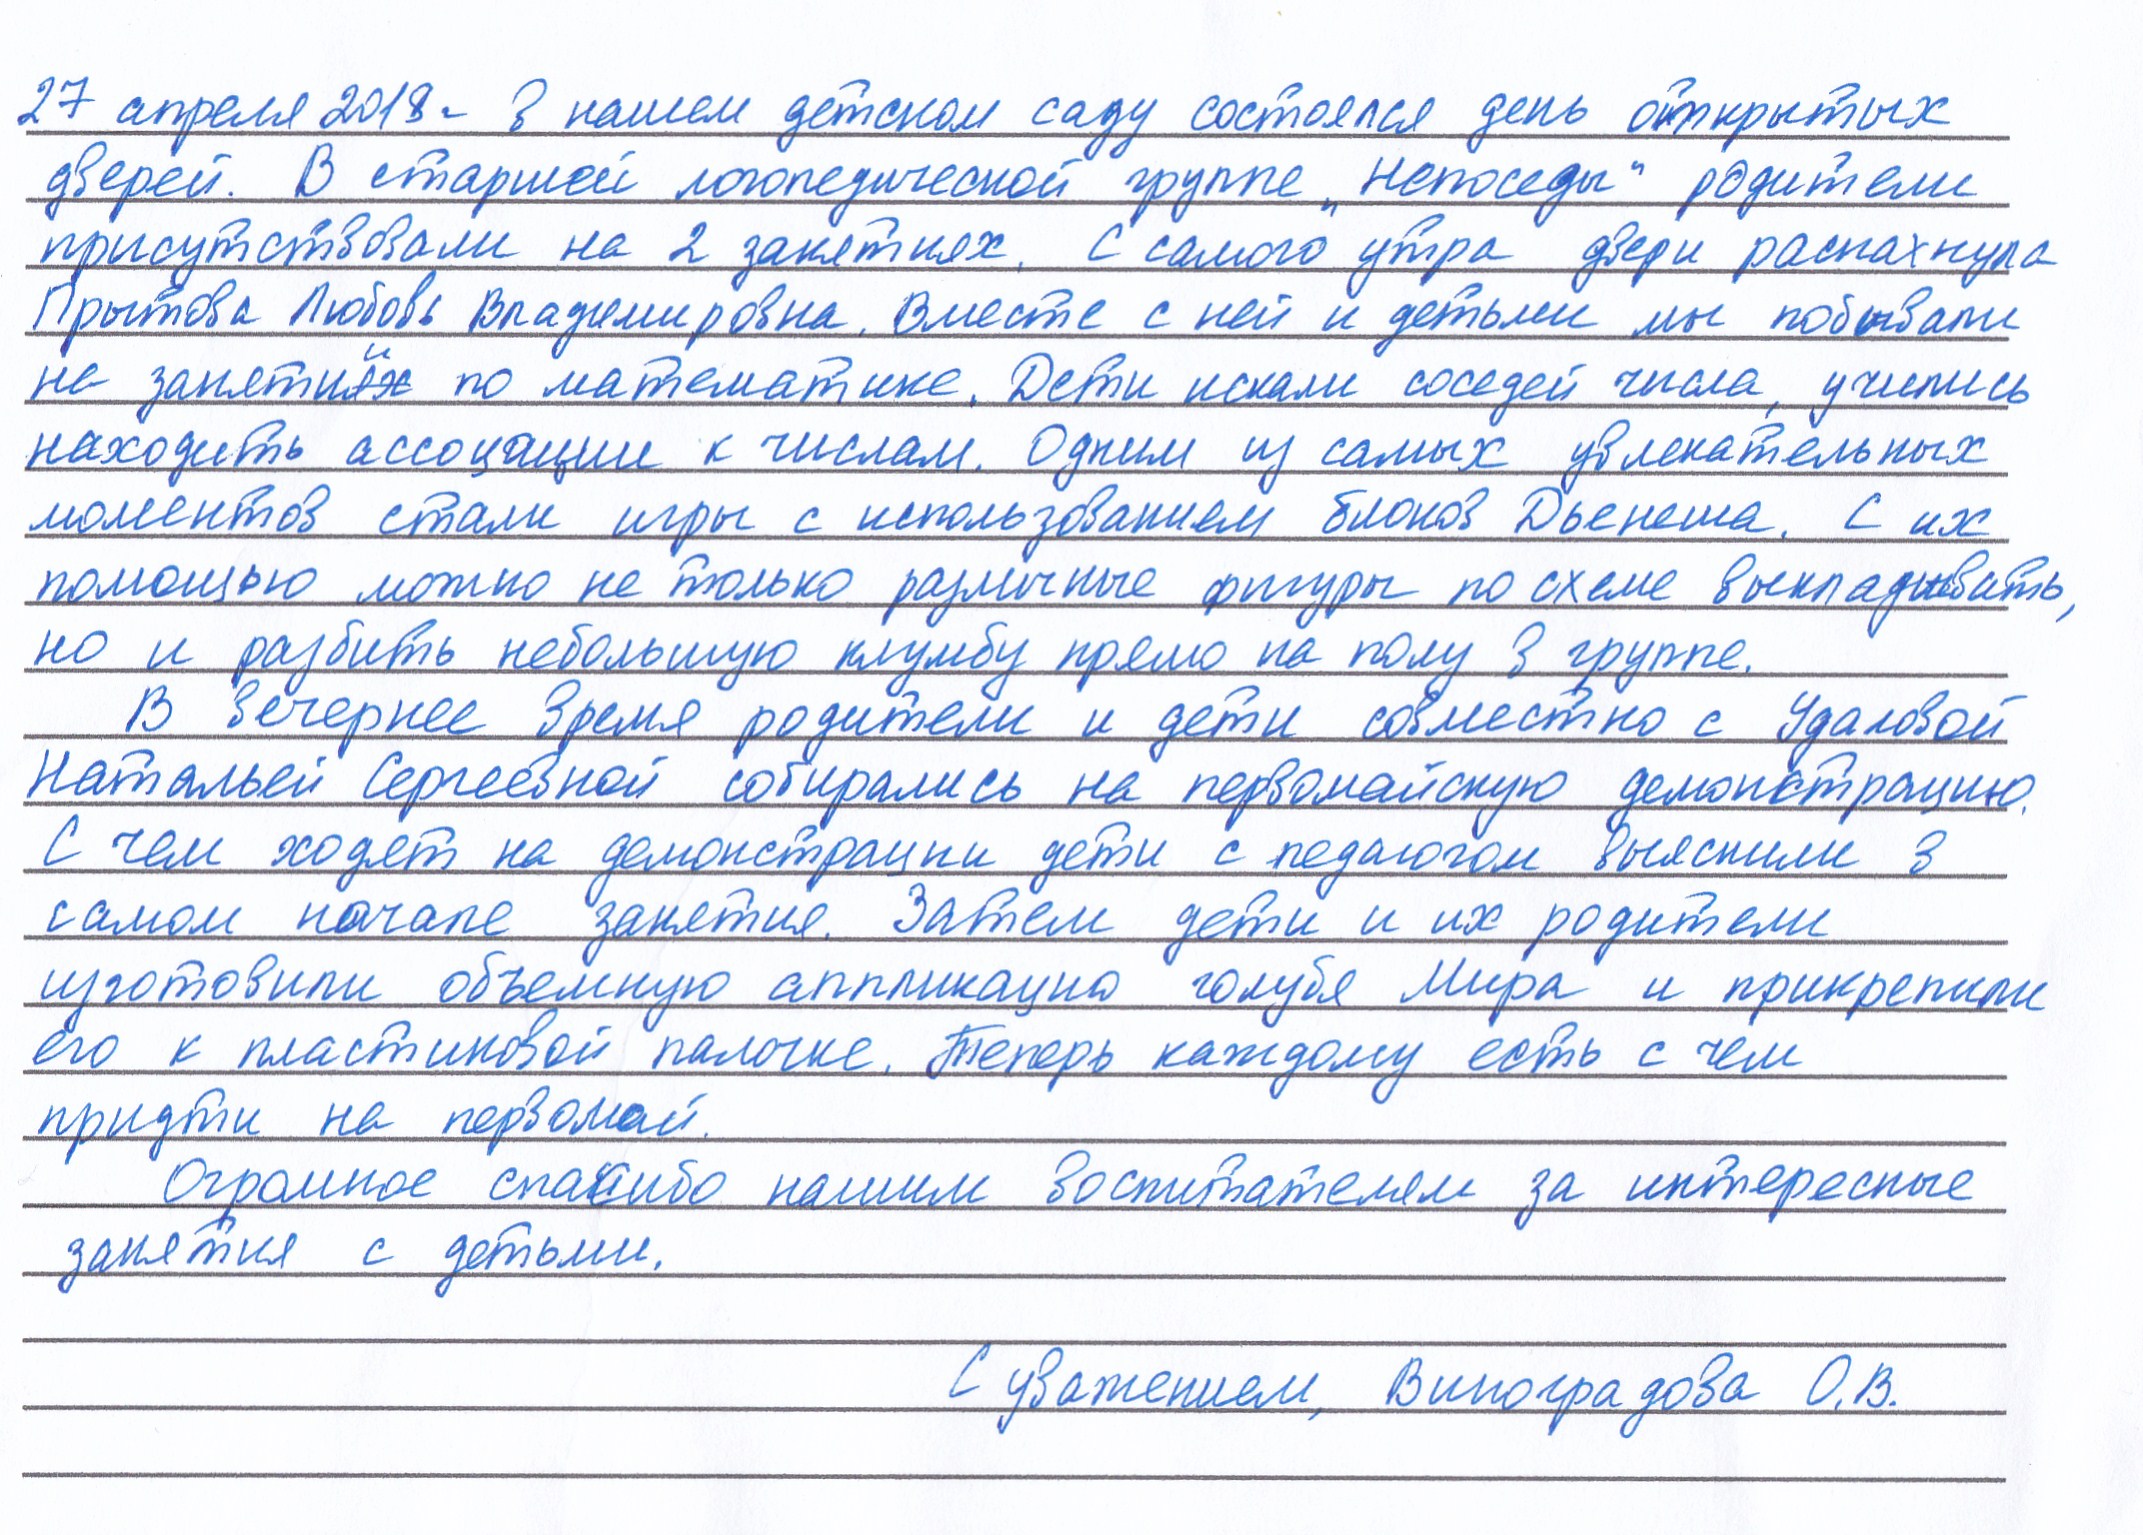 27 апреля 2018г в нашем детском саду состоялся день открытых
дверей. В старшей логопедической группе „Непоседы“ родители
присутствовали на 2 занятиях. С самого утра двери распахнула
Прытова Любовь Владимировна. Вместе с ней и детьми мы побывали
на занятии по математике. Дети искали соседей числа, учились
находить ассоциации к числам. Одним из самых увлекательных
моментов стали игры с использованием блоков Дьенеша. С их
помощью можно не только различные фигуры по схеме выкладывать,
но и разбить небольшую клумбу прямо на полу в группе.
В вечернее время родители и дети совместно с Удаловой
Натальей Сергеевной собирались на первомайскую демонстрацию.
С чем ходят на демонстрации дети с педагогом выяснили в
самом начале занятия. Затем дети и их родители
изготовили объемную аппликацию голубя Мира и прикрепили
его к пластиковой палочке. Теперь каждому есть с чем
придти на первомай.
Огромное спасибо нашим воспитателям за интересные
занятия с детьми.
С уважением, Виноградова О.В.